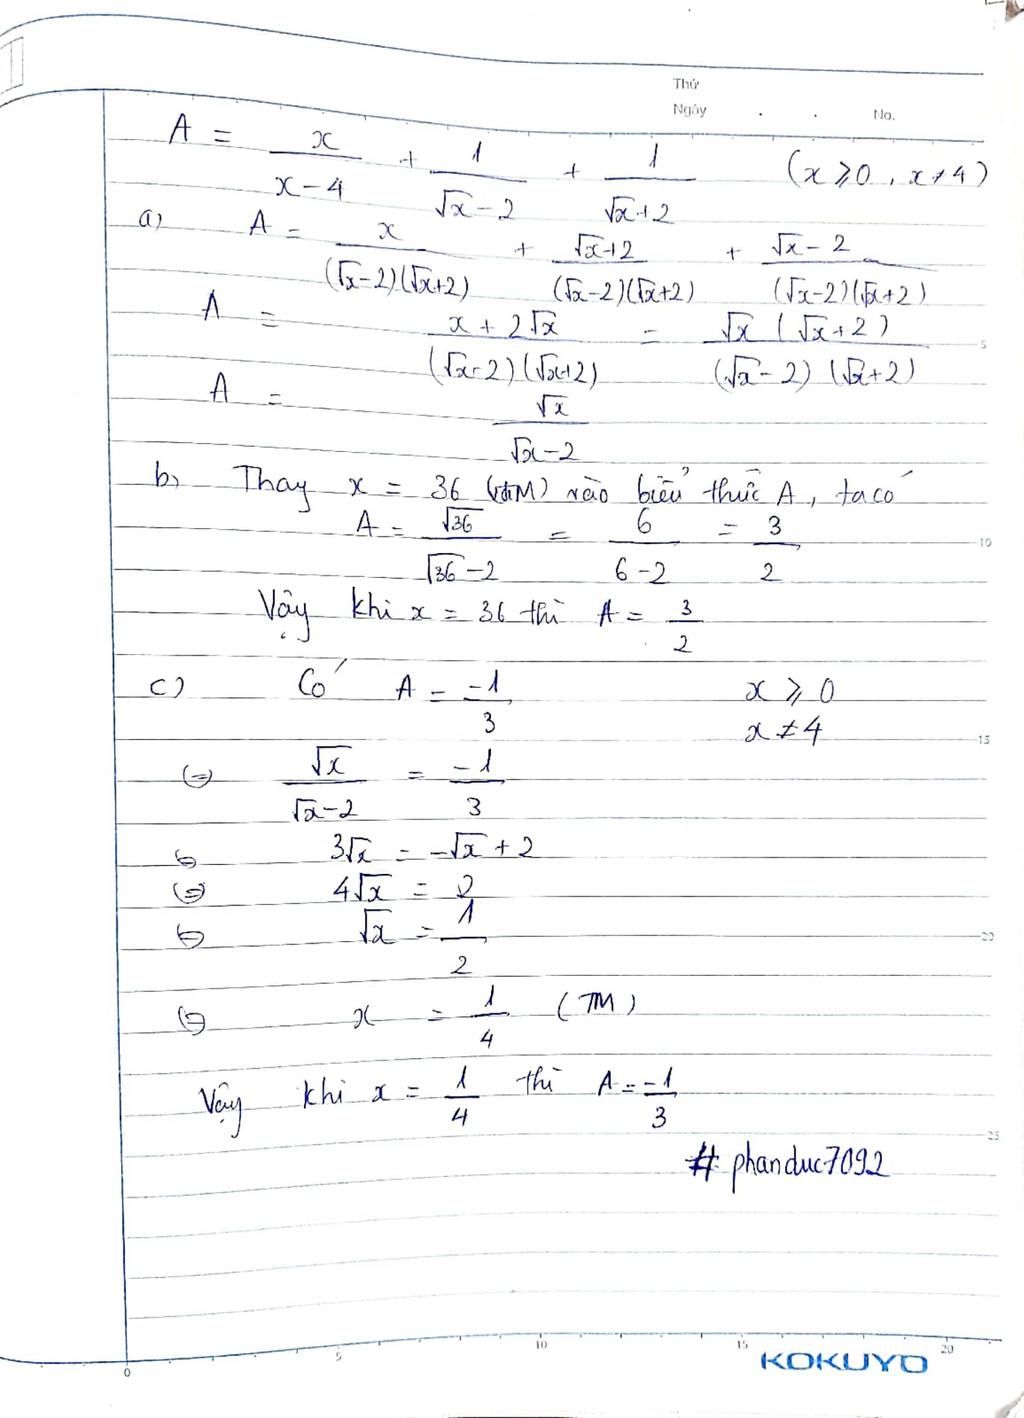 Thứ
Ngày . . No.
A = x/(x-4) + 1/(√x-2) + 1/(√x+2) (x ⩾ 0, x ≠ 4)
a) A = x/((√x-2)(√x+2)) + (√x+2)/((√x-2)(√x+2)) + (√x-2)/((√x-2)(√x+2))
A = (x+2√x)/((√x-2)(√x+2)) = √x(√x+2)/((√x-2)(√x+2))
A = √x/(√x-2)
b) Thay x = 36 (tđM) vào biểu thức A, ta có
A = √36/(√36-2) = 6/(6-2) = 3/2
Vậy khi x = 36 thì A = 3/2
c) Có A = -1/3 x ⩾ 0
x ≠ 4
⇔ √x/(√x-2) = -1/3
⇔ 3√x = -√x + 2
⇔ 4√x = 2
⇔ √x = 1/2
⇔ x = 1/4 (TM)
Vậy khi x = 1/4 thì A = -1/3
# phanduc7092
5
10
15
20
25
0 5 10 15 20
KOKUYO